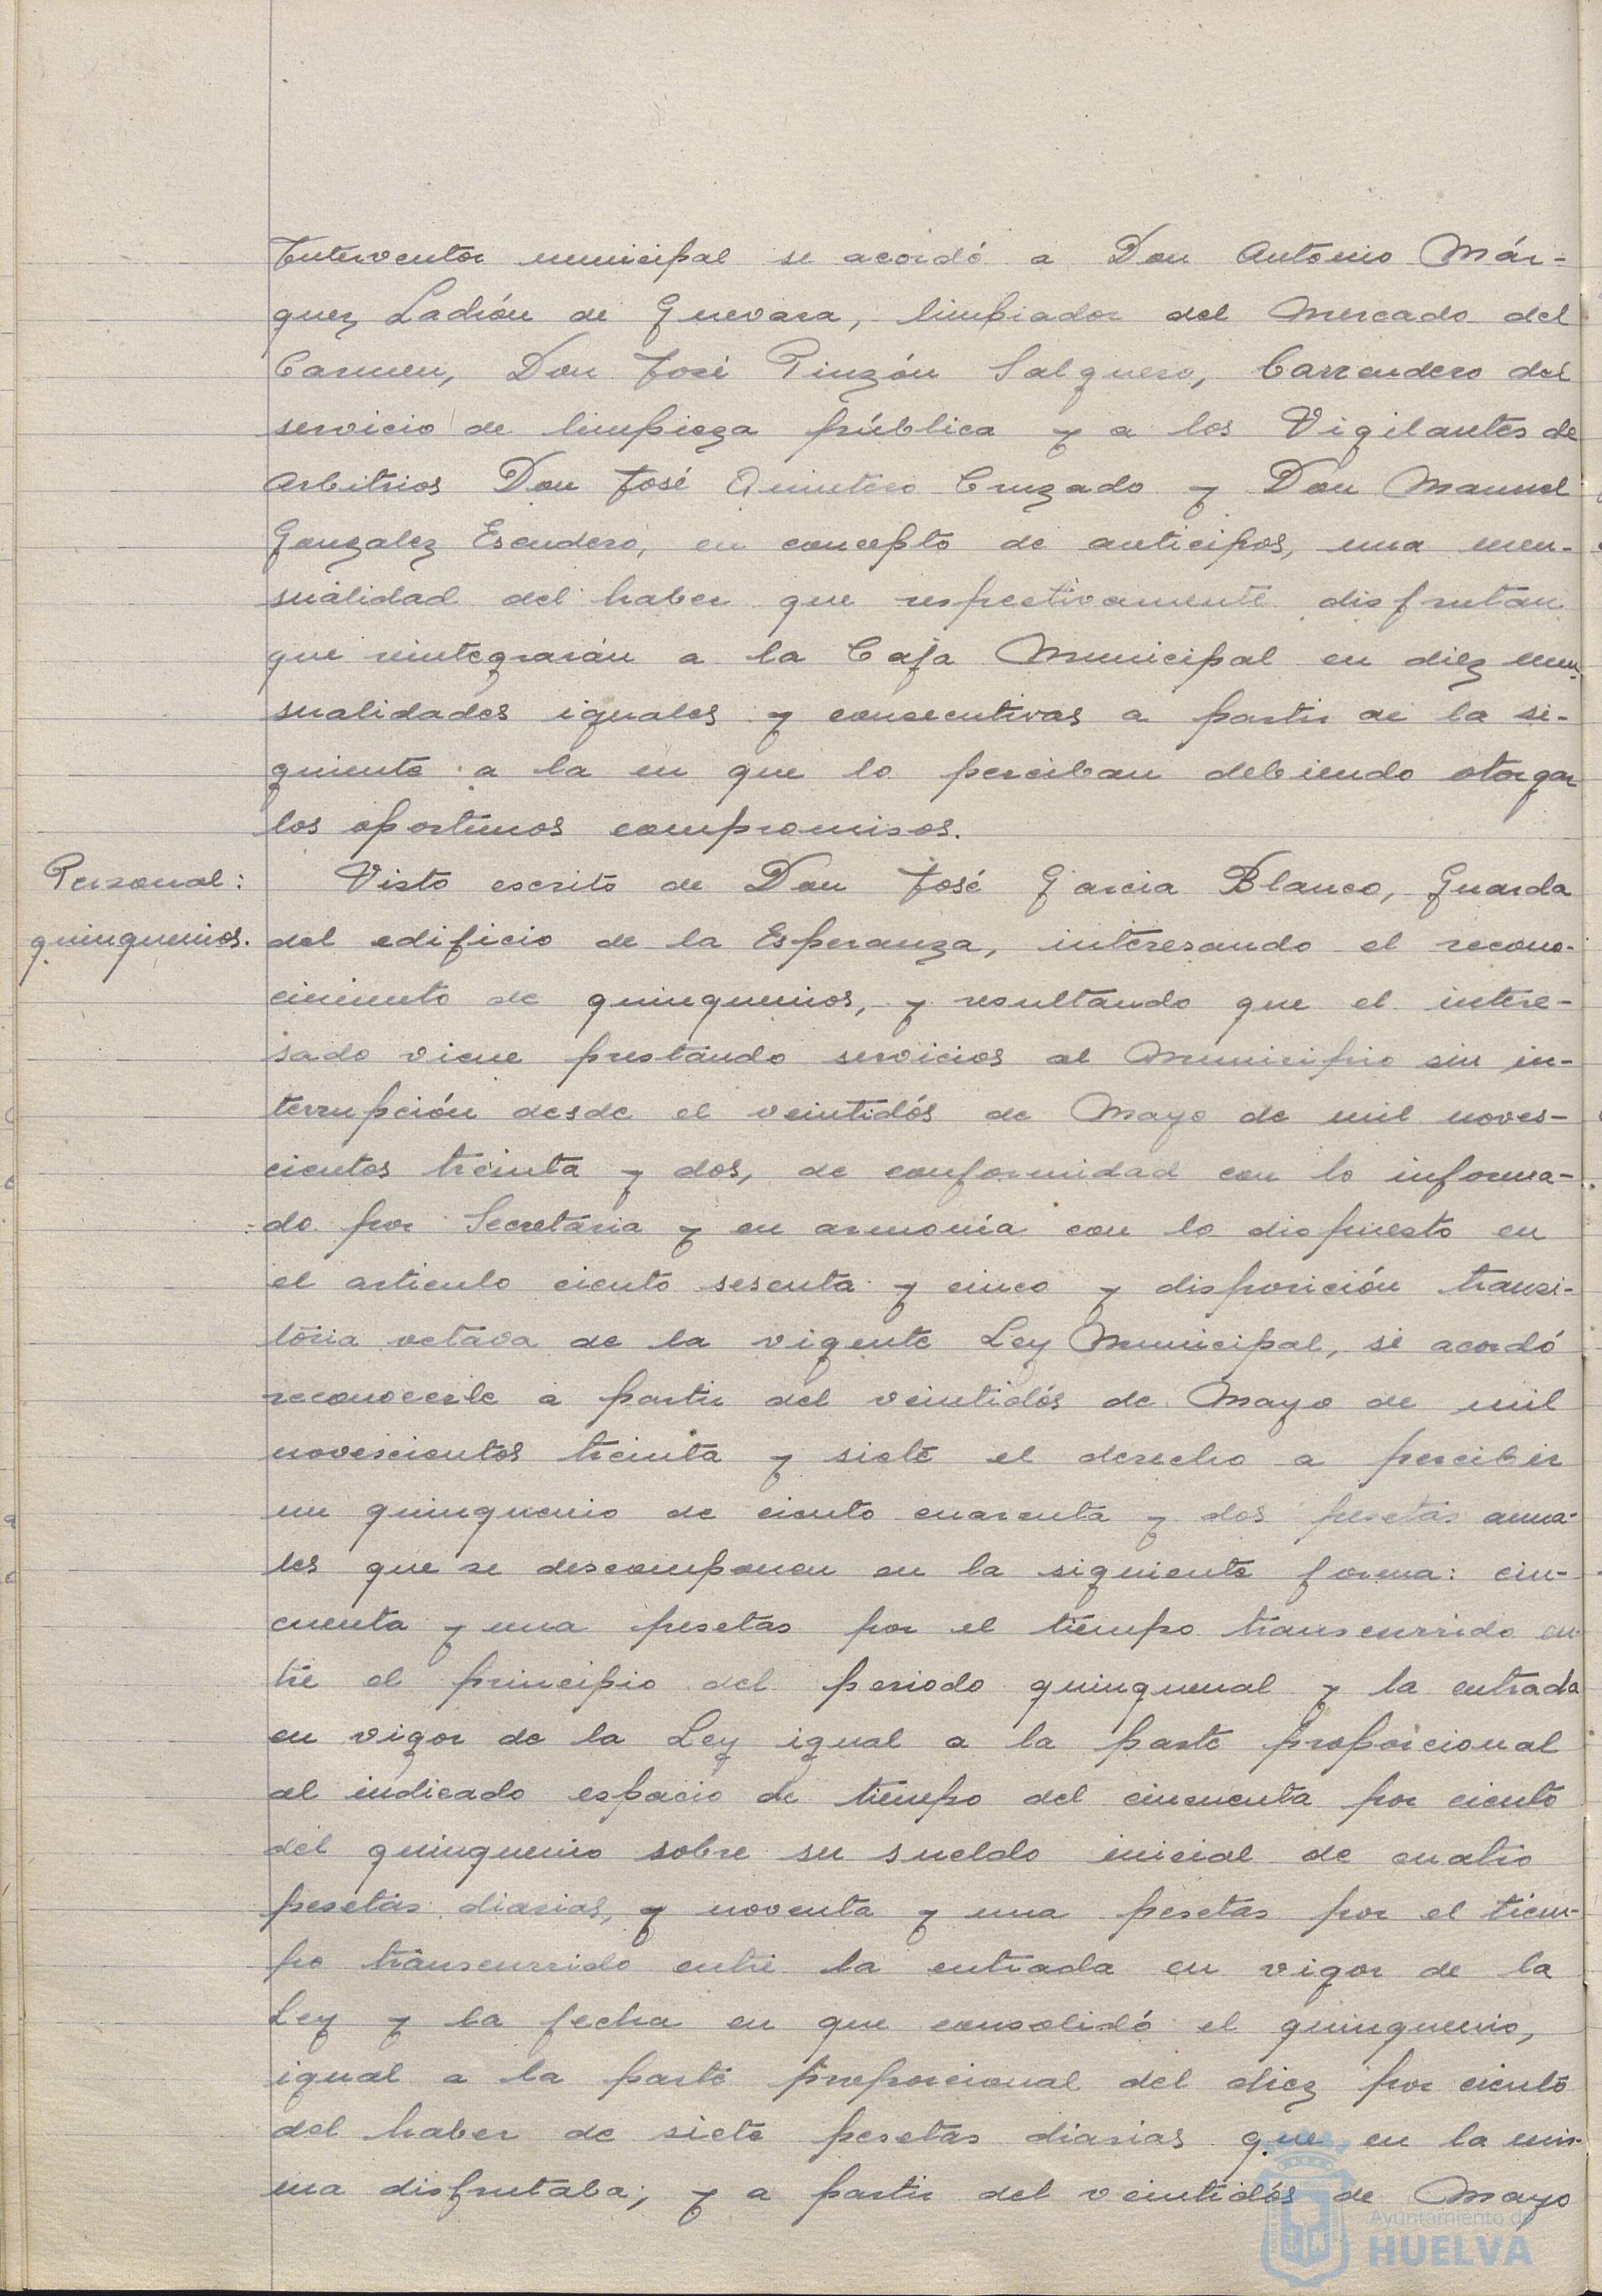 Interventor municipal se acordó a Don Antonio Már-
quez Ladrón de Guevara, limpiador del Mercado del
Carmen, Don José Pinzón Salguero, Carrendero del
servicio de limpieza pública y a los Vigilantes de
Arbitrios Don José Quintero Cruzado y Don Manuel
Gonzalez Escudero, en concepto de anticipos, una men-
sualidad del haber que respectivamente disfrutan
que reintegrarán a la Caja Municipal en diez men-
sualidades iguales y consecutivas a partir de la si-
guiente a la en que lo perciban debiendo otorgar
los oportunos compromisos.
Personal:
quinquenios.
Visto escrito de Don José Garcia Blanco, Guarda
del edificio de la Esperanza, interesando el recono-
cimiento de quinquenios, y resultando que el intere-
sado viene prestando servicios al Municipio sin in-
terrupción desde el veintidós de Mayo de mil noves-
cientos treinta y dos, de conformidad con lo informa-
do por Secretaria y en armonía con lo dispuesto en
el articulo ciento sesenta y cinco y disposición transi-
toria octava de la vigente Ley Municipal, se acordó
reconocerle a partir del veintidós de Mayo de mil
novescientos treinta y siete el derecho a percibir
un quinquenio de ciento cuarenta y dos pesetas anua-
les que se descomponen en la siguiente forma: cin-
cuenta y una pesetas por el tiempo transcurrido en-
tre el principio del periodo quinquenal y la entrada
en vigor de la Ley igual a la parte proporcional
al indicado espacio de tiempo del cincuenta por ciento
del quinquenio sobre su sueldo inicial de cuatro
pesetas diarias, y noventa y una pesetas por el tiem-
po transcurrido entre la entrada en vigor de la
Ley y la fecha en que consolidó el quinquenio,
igual a la parte proporcional del diez por ciento
del haber de siete pesetas diarias que en la mis-
ma disfrutaba; y a partir del veintidós de Mayo
Ayuntamiento de
HUELVA